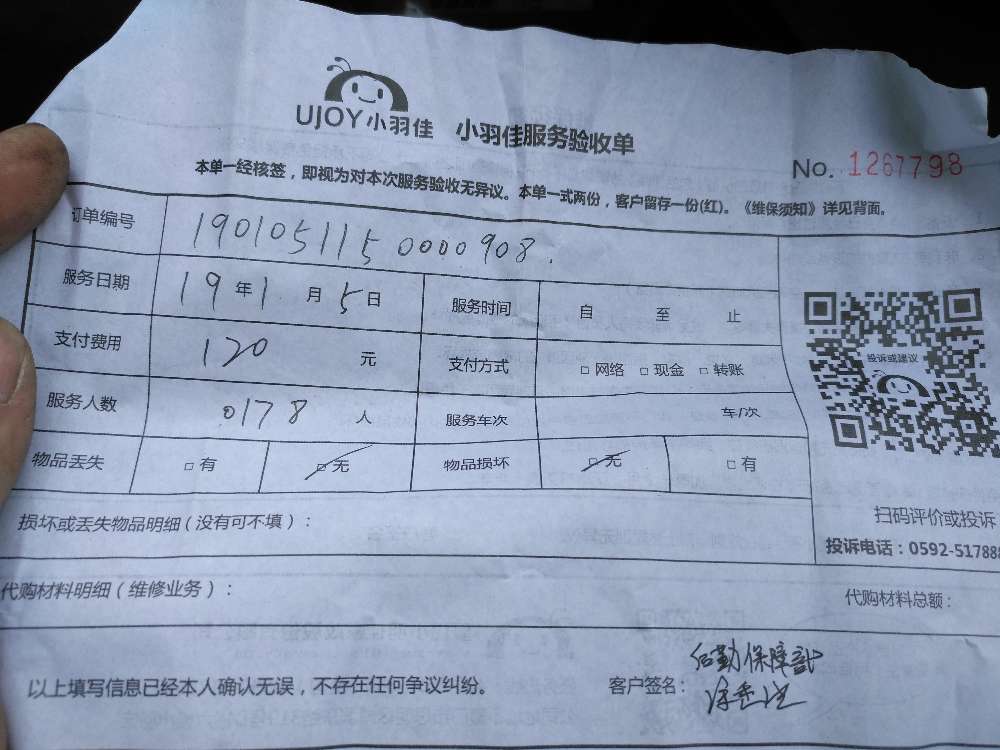 UJOY小羽佳 小羽佳服务验收单
No. 1267798
本单一经核签，即视为对本次服务验收无异议。本单一式两份，客户留存一份(红)。《维保须知》详见背面。
订单编号 1901051150000908.
服务日期 19年1月5日 服务时间 自 至 止
支付费用 120 元 支付方式 □网络 □现金 □转账
服务人数 0178 人 服务车次 车/次
物品丢失 □有 □无 物品损坏 □无 □有
投诉或建议
扫码评价或投诉
投诉电话：0592-517888
损坏或丢失物品明细（没有可不填）：
代购材料明细（维修业务）： 代购材料总额：
后勤保障部
以上填写信息已经本人确认无误，不存在任何争议纠纷。 客户签名：